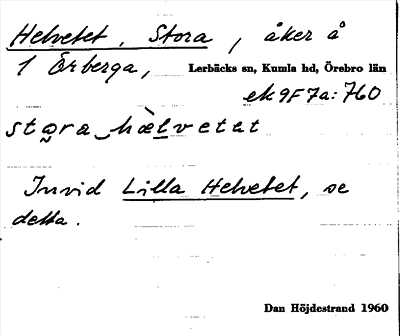 Helvetet, Stora, åker å
1 Örberga, Lerbäcks sn, Kumla hd, Örebro län
ek 9F7a:760
stora hælvetat
Invid Lilla Helvetet, se
detta.
Dan Höjdestrand 1960